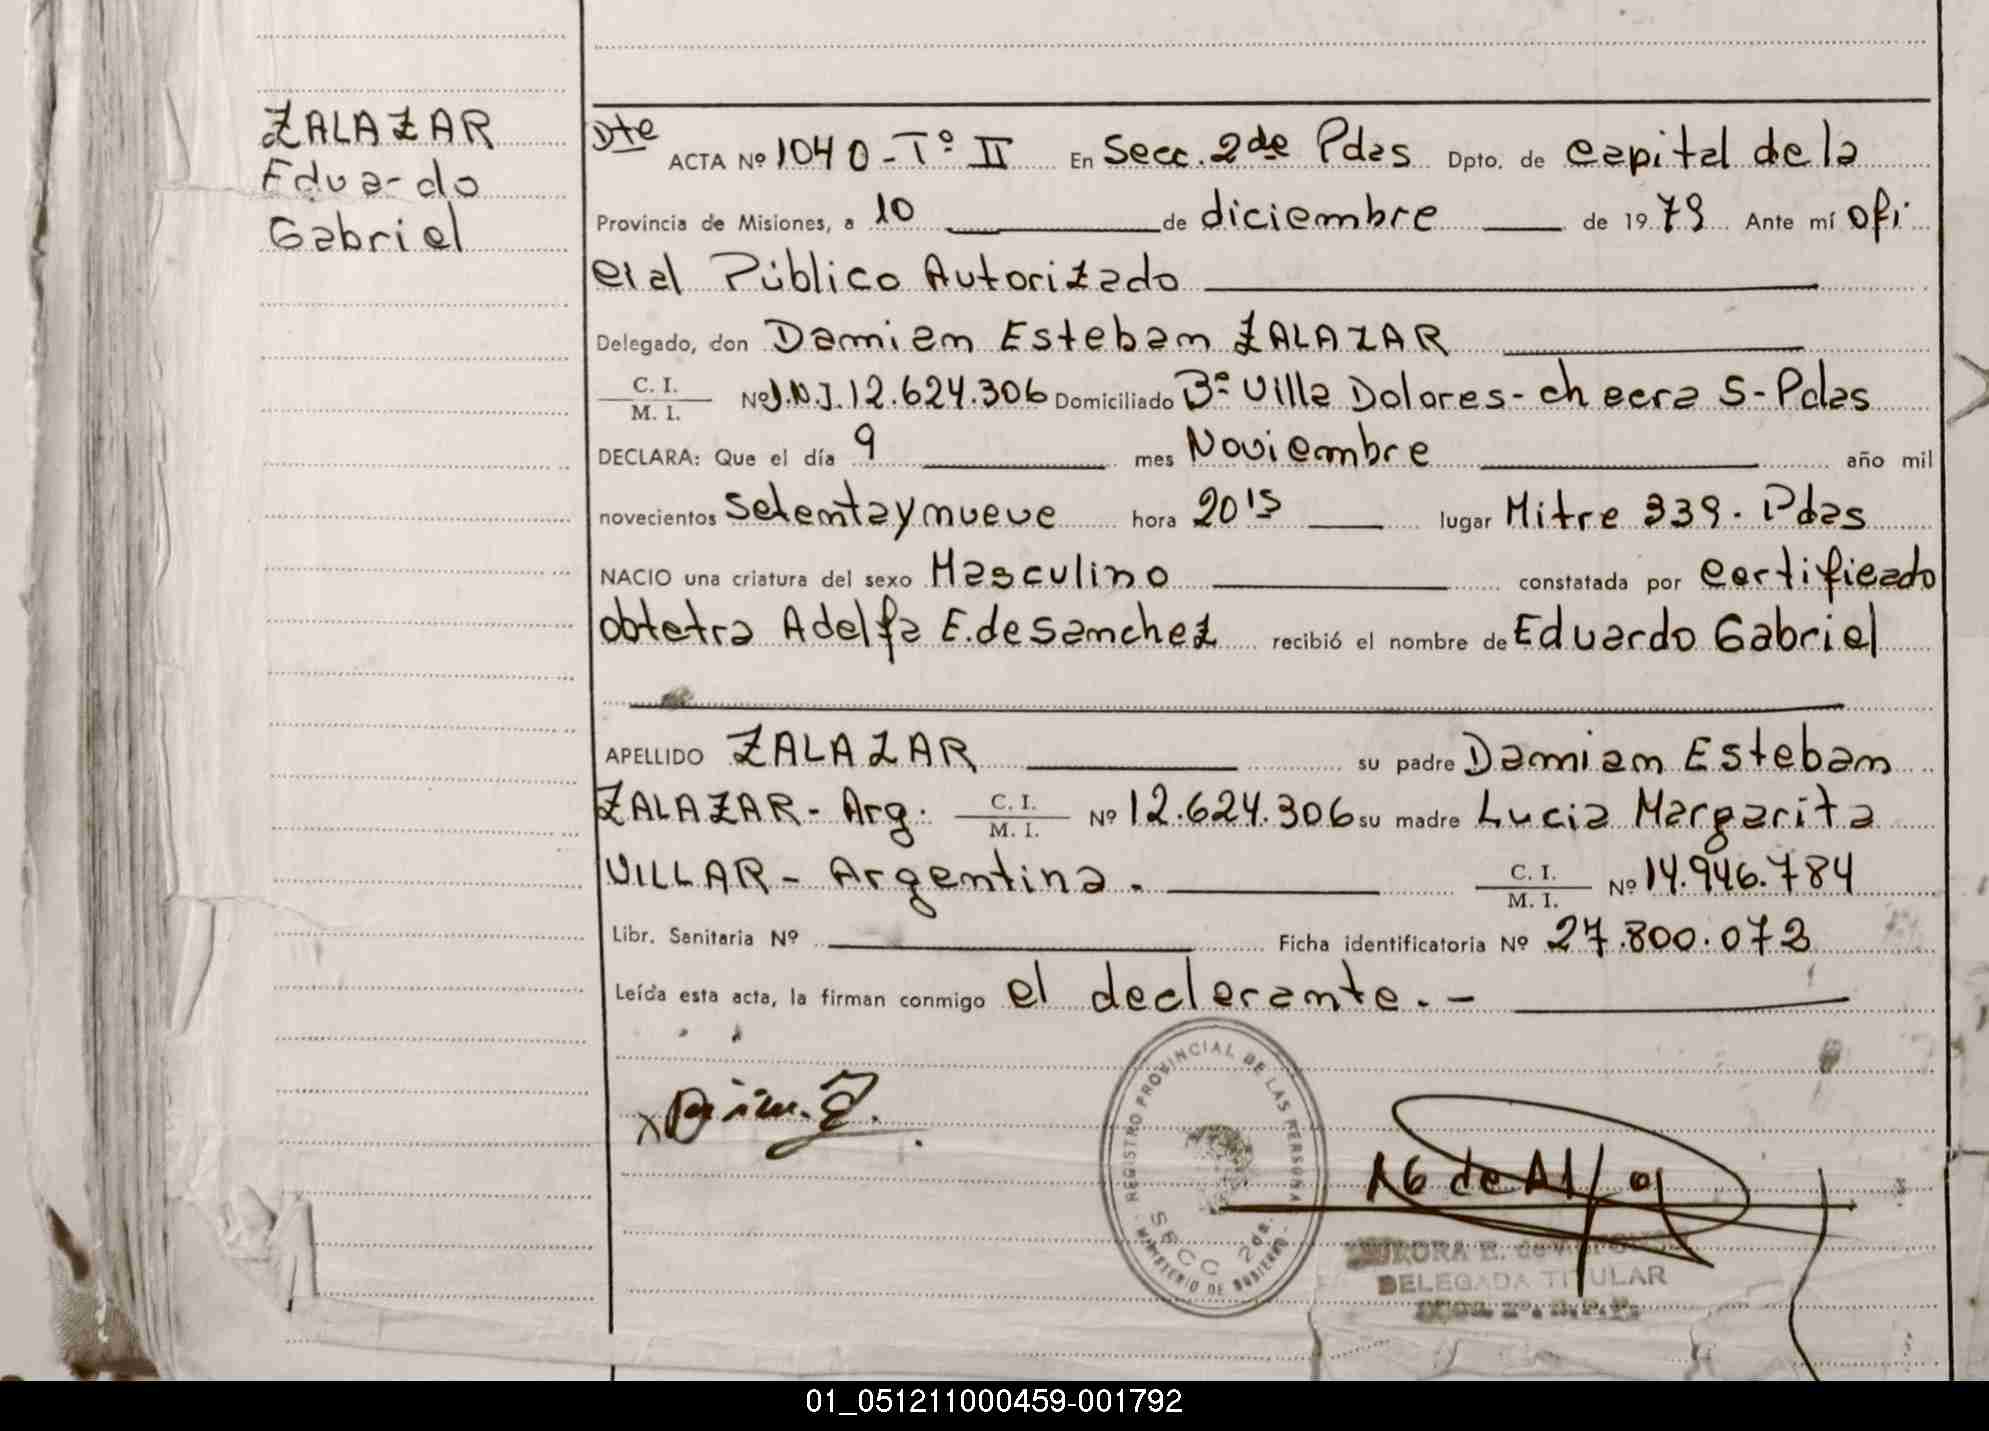 ZALAZAR
Eduardo
Gabriel
Dte ACTA Nº 1040 - Tº II En Secc. 2da Pdas Dpto. de capital de la
Provincia de Misiones, a 10 de diciembre de 1979 Ante mí ofi
cial Público Autorizado
Delegado, don Damian Esteban ZALAZAR
C. I.
M. I. Nº D.N.I. 12.624.306 Domiciliado Bº Villa Dolores - chacra S - Pdas
DECLARA: Que el día 9 mes Noviembre año mil
novecientos setentaynueve hora 20 15 lugar Mitre 339. Pdas
NACIO una criatura del sexo Masculino constatada por certificado
obtetra Adelfa E. de Sanchez recibió el nombre de Eduardo Gabriel
APELLIDO ZALAZAR su padre Damian Esteban
ZALAZAR - Arg. C. I.
M. I. Nº 12.624.306 su madre Lucia Margarita
VILLAR - Argentina. C. I.
M. I. Nº 14.946.784
Libr. Sanitaria Nº Ficha identificatoria Nº 27.800.073
Leída esta acta, la firman conmigo el declarante. -
REGISTRO PROVINCIAL DE LAS PERSONAS
SECC 2da.
MINISTERIO DE GOBIERNO
AURORA E. de
DELEGADA TITULAR
01_051211000459-001792